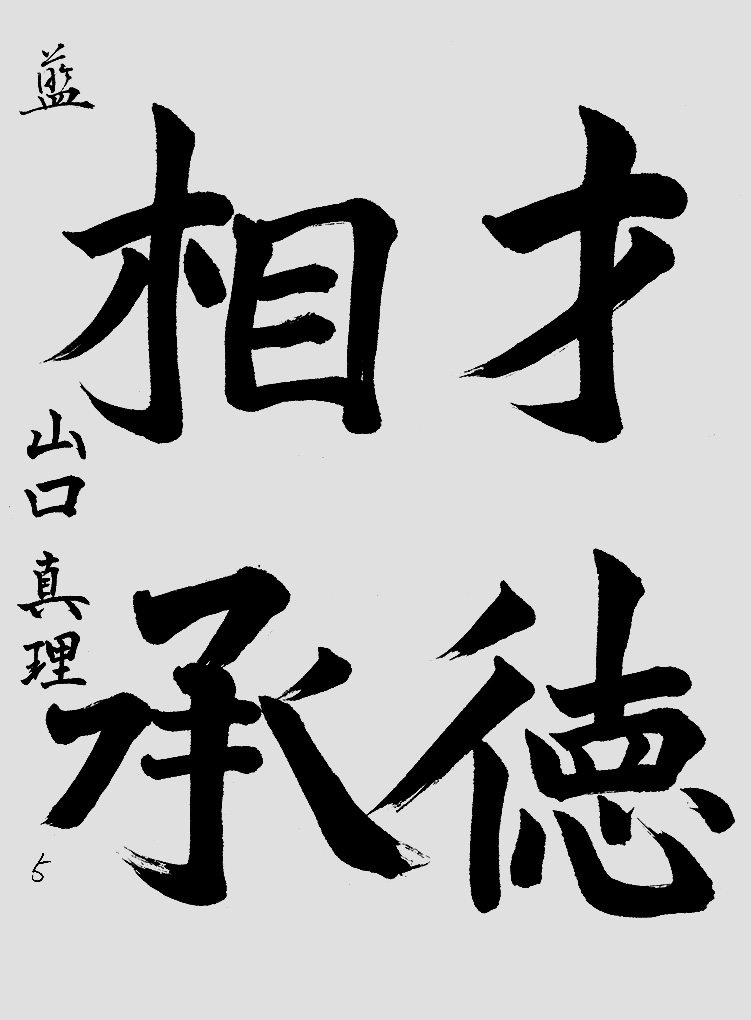 才徳
相承
藍 山口真理 5